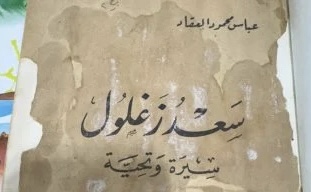 عباس محمود العقاد
سعد زغلول
سيرة وتحية